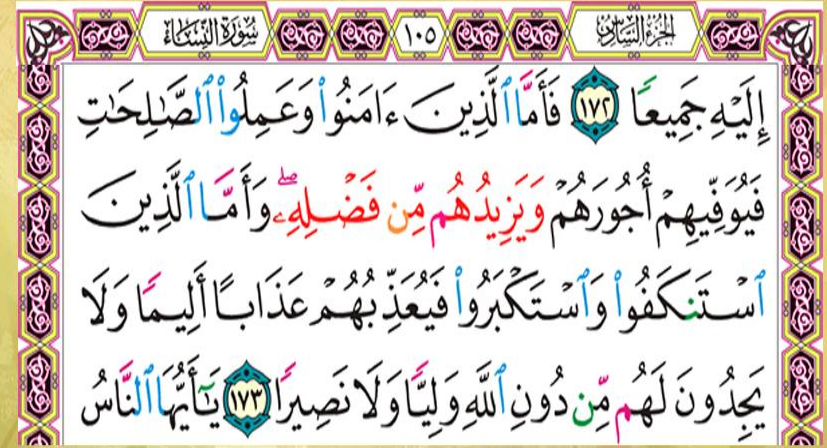 الجزء السادس ١٠٥ سورة النساء
إِلَيْهِ جَمِيعًا ١٧٢ فَأَمَّا ٱلَّذِينَ ءَامَنُوا۟ وَعَمِلُوا۟ ٱلصَّـٰلِحَـٰتِ
فَيُوَفِّيهِمْ أُجُورَهُمْ وَيَزِيدُهُم مِّن فَضْلِهِۦ ۖ وَأَمَّا ٱلَّذِينَ
ٱسْتَنكَفُوا۟ وَٱسْتَكْبَرُوا۟ فَيُعَذِّبُهُمْ عَذَابًا أَلِيمًا وَلَا
يَجِدُونَ لَهُم مِّن دُونِ ٱللَّهِ وَلِيًّا وَلَا نَصِيرًا ١٧٣ يَـٰٓأَيُّهَا ٱلنَّاسُ